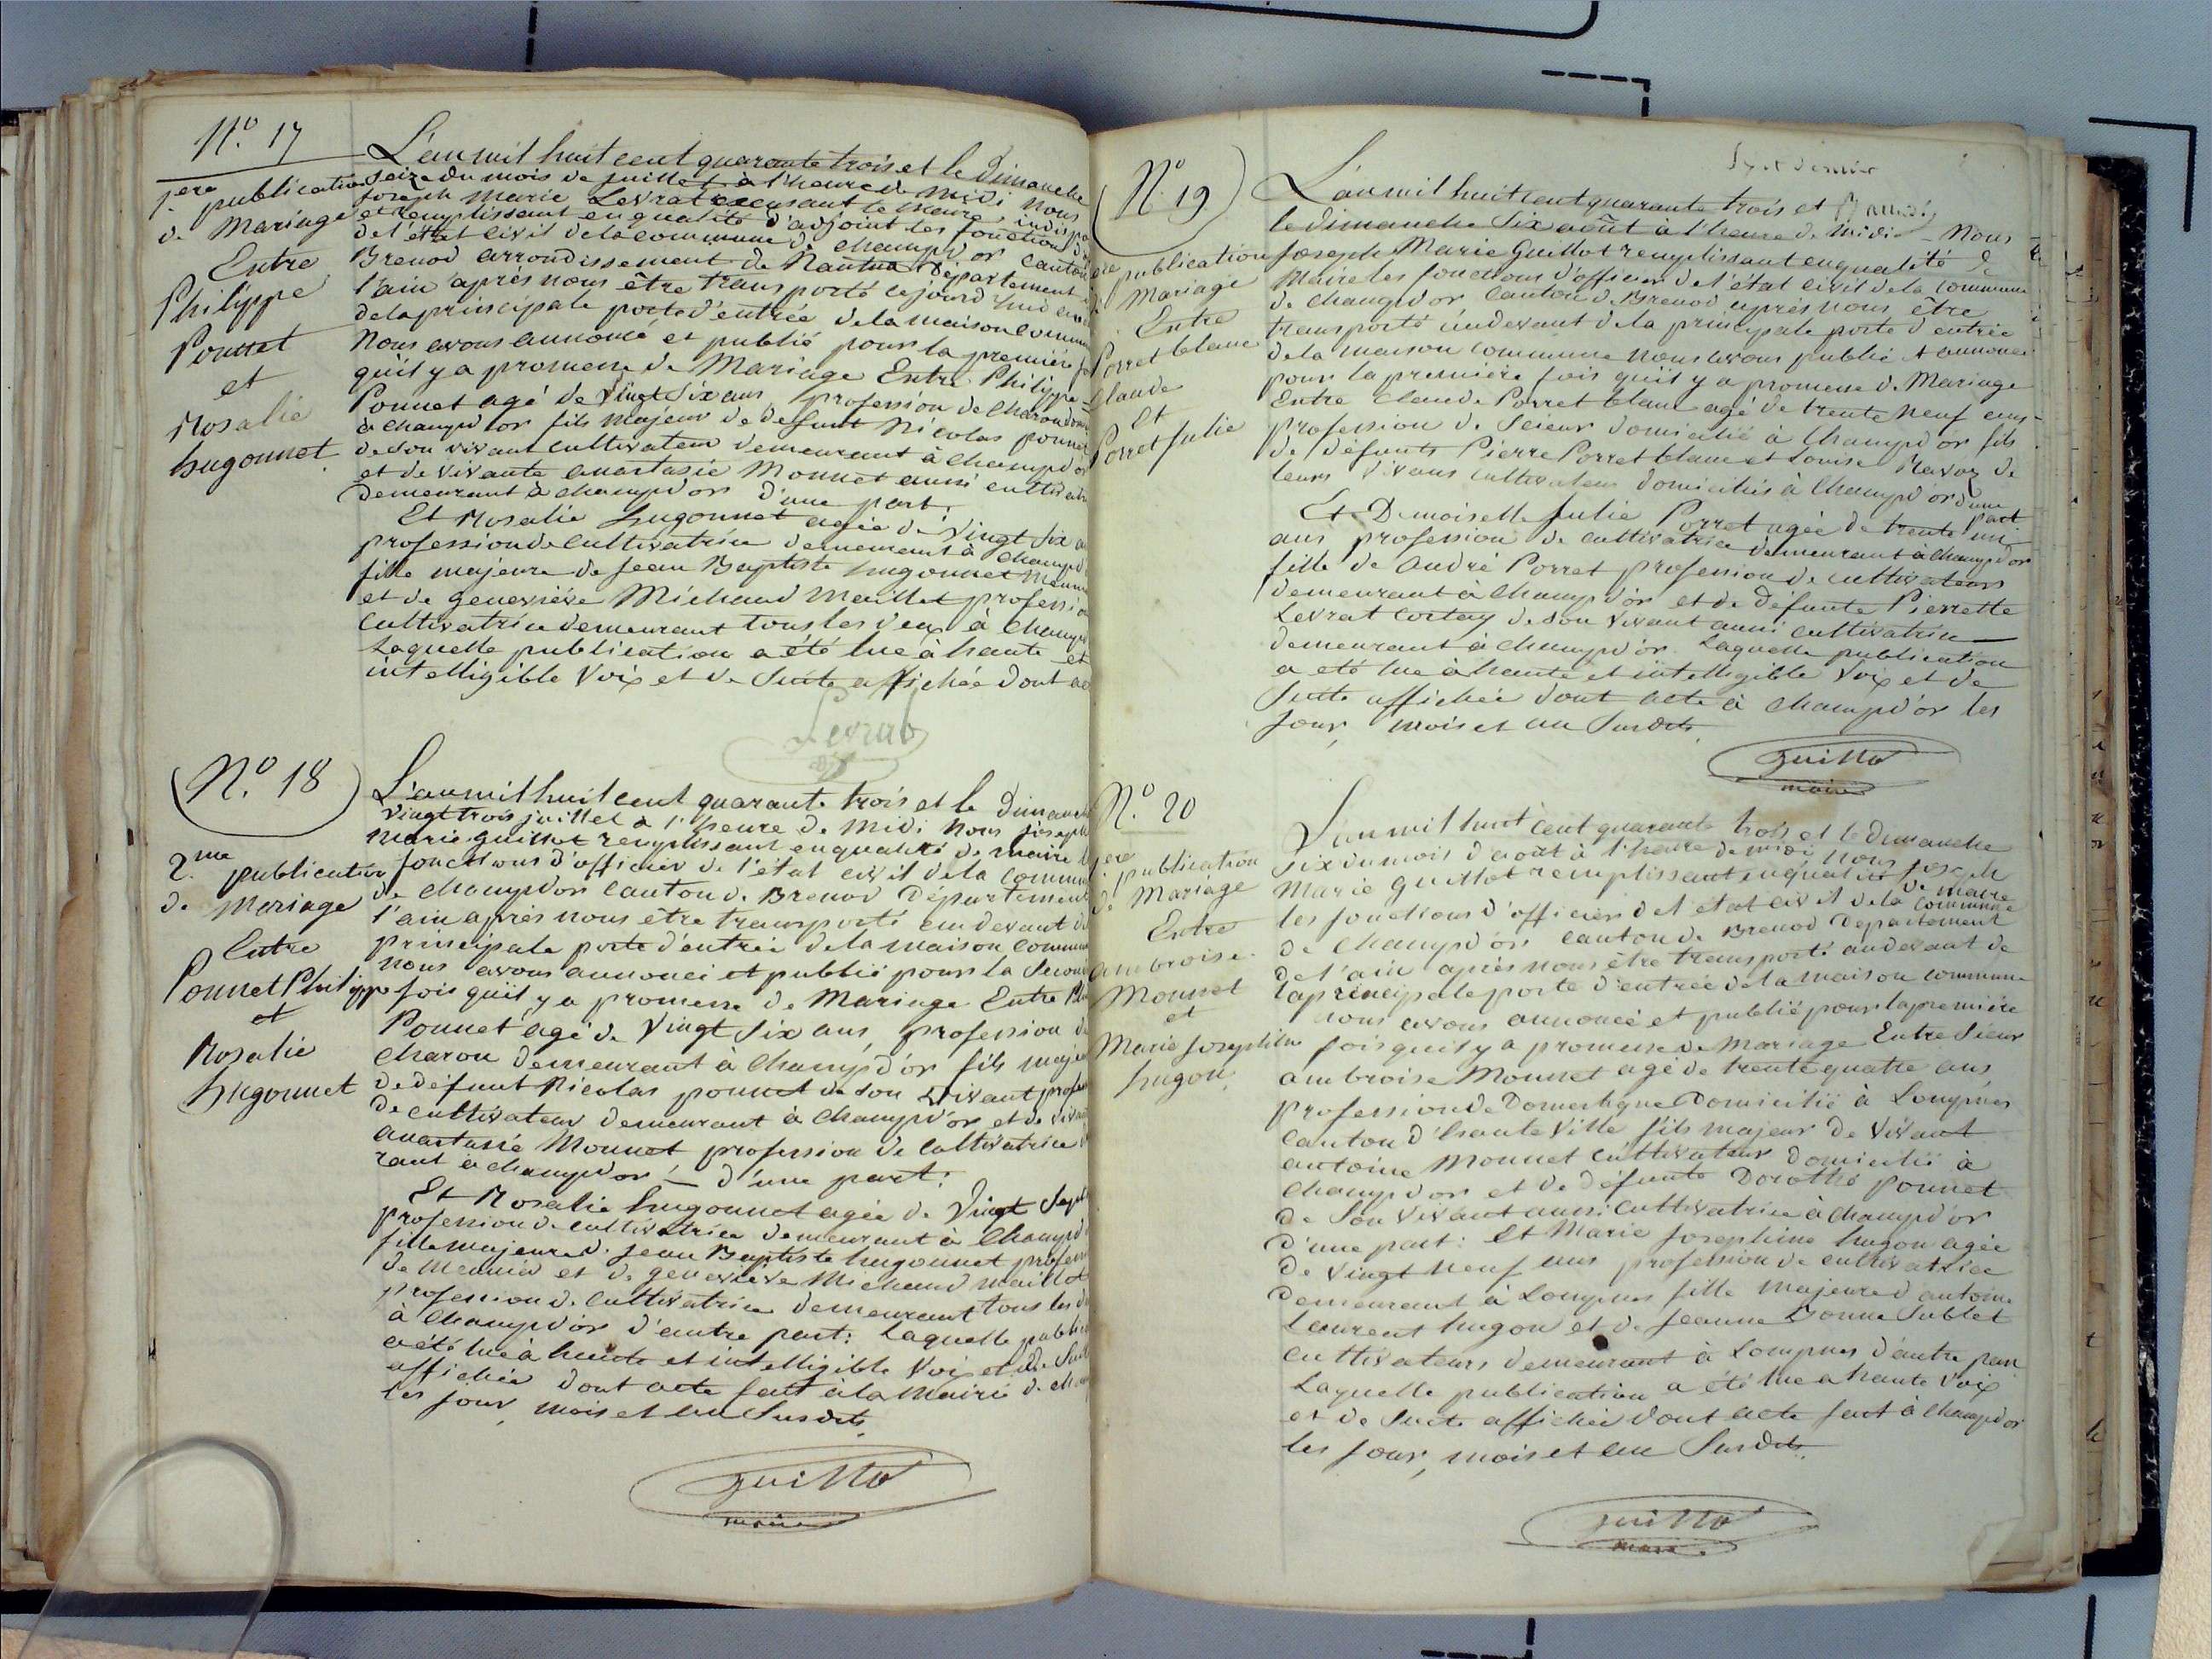 N.º 17
1ère publication
de Mariage
Entre
Philippe
Ponnet
et
Rosalie
hugonnet
L'an mil huit cent quarante trois et le Dimanche
seize du mois de juillet à l'heure de midi nous
Joseph Marie Levrat
et remplissant en qualité d'adjoint les fonctions
de l'état civil de la commune de champd'or canton
Brenod arrondissement de Nantua Département
l'ain après nous être transporté cejourd'hui
de la principale porte d'entrée de la maison commu
Nous avons annoncé et publié pour la première
qu'il y a promesse de Mariage Entre Philippe
Ponnet agé de Vingt Six ans, profession de Charon
à champd'or fils majeur de defunt Nicolas ponnet
de son vivant cultivateur demeurant à champd'o
et de vivante anastasie Monnet aussi cultivat
demeurant à champd'or d'une part.
Et Rosalie hugonnet agée de Vingt Six
profession de Cultivatrice demeurant à Champd
fille majeure de jean Baptiste hugonnet
et de genevieve Michaud Maillet profession
Cultivatrice demeurant tous les deux à Champ
Laquelle publication a été lue à haute et
intelligible Voix et de Suite affichée dont ac
Levrat
N.º 18
2.me publication
de Mariage
Entre
Ponnet Philippe
et
Rosalie
hugonnet
L'an mil huit cent quarante trois et le Dimanch
Vingt trois juillet à l'heure de Midi Nous joseph
Marie guillot remplissant en qualité de maire
fonctions d'officier de l'état civil de la Commun
de champd'or Canton de Brenod Département
l'ain après nous être transporté en devant de
principale porte d'entrée de la maison Commun
nous avons annoncé et publié pour la Secon
fois qu'il y a promesse de Mariage Entre
Ponnet agé de Vingt Six ans, profession de
Charon demeurant à Champd'or fils maje
de défunt Nicolas ponnet de son Vivant
de cultivateur demeurant à Champd'or et de
anastasie Monnet profession de Cultivatrice
rant à champd'or – d'une part:
Et Rosalie hugonnet agée de Vingt Sept
profession de cultivatrice demeurant à Champd
fille majeure de jean Baptiste hugonnet
de Meunier et de genevieve Michaud maillot
profession de Cultivatrice demeurant tous les d
à Champd'or d'autre part: Laquelle public
a été lue à haute et intelligible Voix et de
affichée dont acte fait à la Mairie de
les jour, mois et an Susdits.
guillot
maire
N.º 19
publication
Mariage
Entre
Porret blanc
Claude
Et
Porret Julie
L'an mil huit cent quarante trois et
le dimanche Six août à l'heure de Midi – Nous
Joseph Marie Guillot remplissant en qualité de
Maire les fonctions d'officier de l'état Civil de la Commune
de Champd'or Canton de Brenod après nous être
transporté au devant de la principale porte d'entrée
de la maison commune nous avons publié et annoncé
pour la première fois qu'il y a promesse de Mariage
Entre Claude Porret blanc agé de trente neuf ans
profession de Scieur domicilié à Champd'or fils
de défunts Pierre Porret blanc et Louise de
leurs vivans cultivateurs domiciliés à Champd'or d'une
part
Et Demoiselle Julie Porret agée de trente un
ans profession de cultivatrice demeurant à champd'or
fille de André Porret profession de cultivateurs
demeurant à Champd'or et de Défunte Pierrette
Levrat de son vivant aussi cultivatrice
demeurant à champd'or. Laquelle publication
a été lue à haute et intelligible Voix et de
Suite affichée dont acte à Champd'or les
Jour, mois et an Susdits.
guillot
maire
N.º 20
1ère publication
de Mariage
Entre
ambroise
Monnet
et
Marie Josephine
hugon
L'an mil huit cent quarante trois et le dimanche
six du mois d'août à l'heure de midi Nous Joseph
Marie Guillot remplissant en qualité de maire
les fonctions d'officier de l'état civil de la Commune
de champd'or canton de Brenod Département
de l'ain après nous être transporté au devant de
la principale porte d'entrée de la maison commune
nous avons annoncé et publié pour la première
fois qu'il y a promesse de Mariage Entre Sieur
ambroise Monnet agé de trente quatre ans
profession de Domestique Domicilié à Lompnes
canton d'haute Ville fils majeur de Vivant
antoine Monnet Cultivateur domicilié à
champd'or et de défunte Dorothé Ponnet
de Son Vivant aussi Cultivatrice à champd'or
d'une part: Et Marie Josephine hugon agée
de vingt neuf ans profession de cultivatrice
demeurant à Lompnes fille majeure d'antoine
Laurent hugon et de jeanne Sublet
cultivateurs demeurant à Lompnes d'autre part
Laquelle publication a été lue à haute Voix
et de Suite affichée dont acte fait à Champd'or
les jour, mois et an Susdits.
guillot
maire